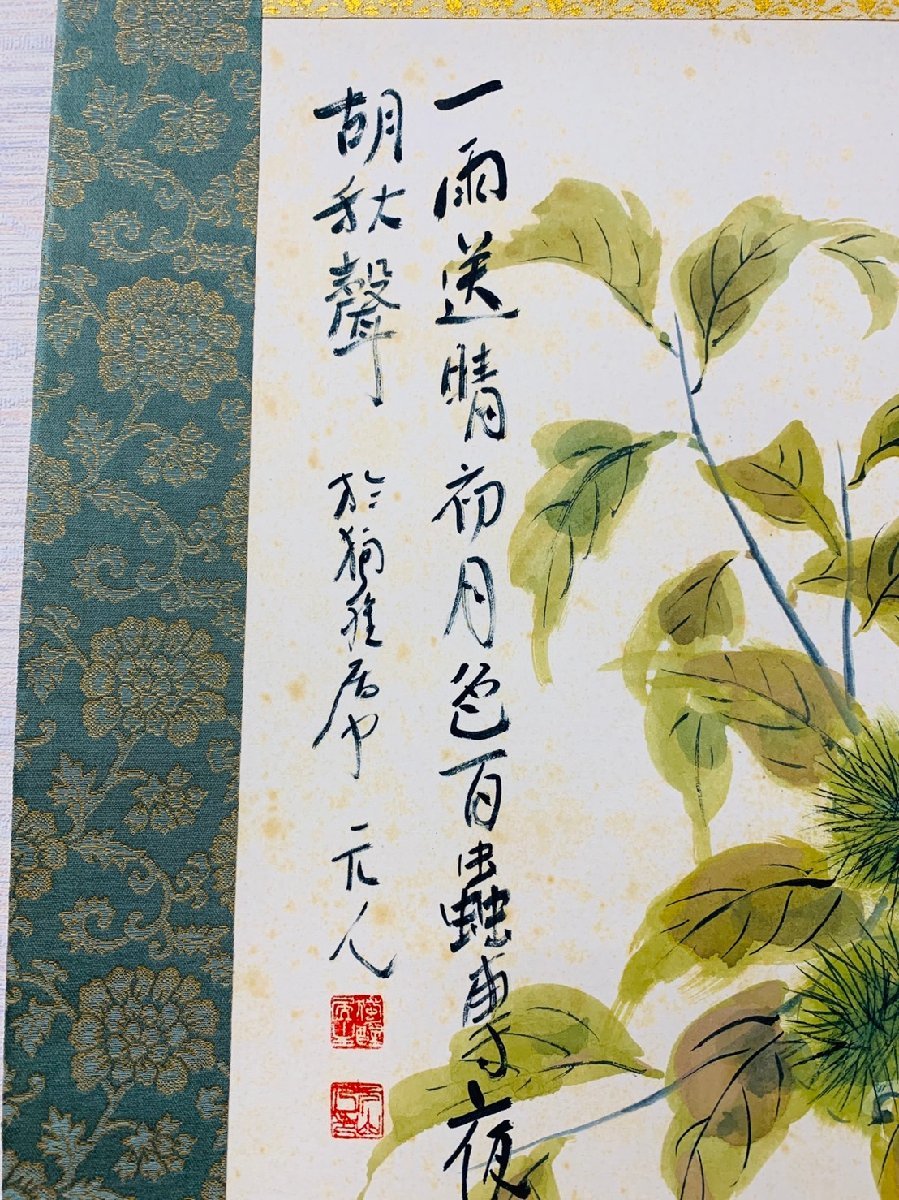 一雨送晴初月色百蟲專夜
胡秋聲
於 居 元人